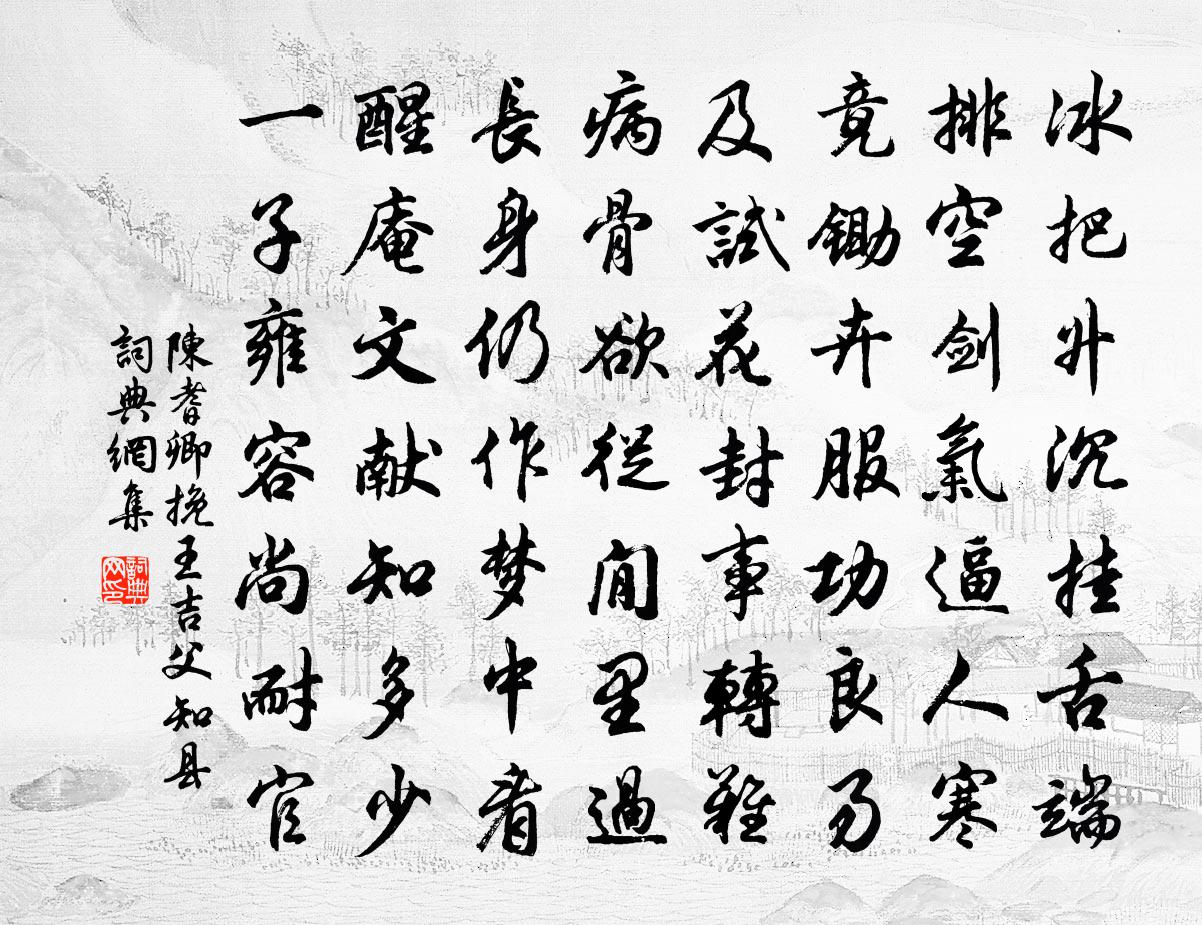 冰把升沉挂舌端
排空剑氣逼人寒
竟鋤卉服功良易
及試花封事轉難
病骨欲從閒里過
長身仍作梦中看
醒庵文献知多少
一子雍容尚耐官
陳耆卿挽王吉父知县
詞典網集
詞典网印